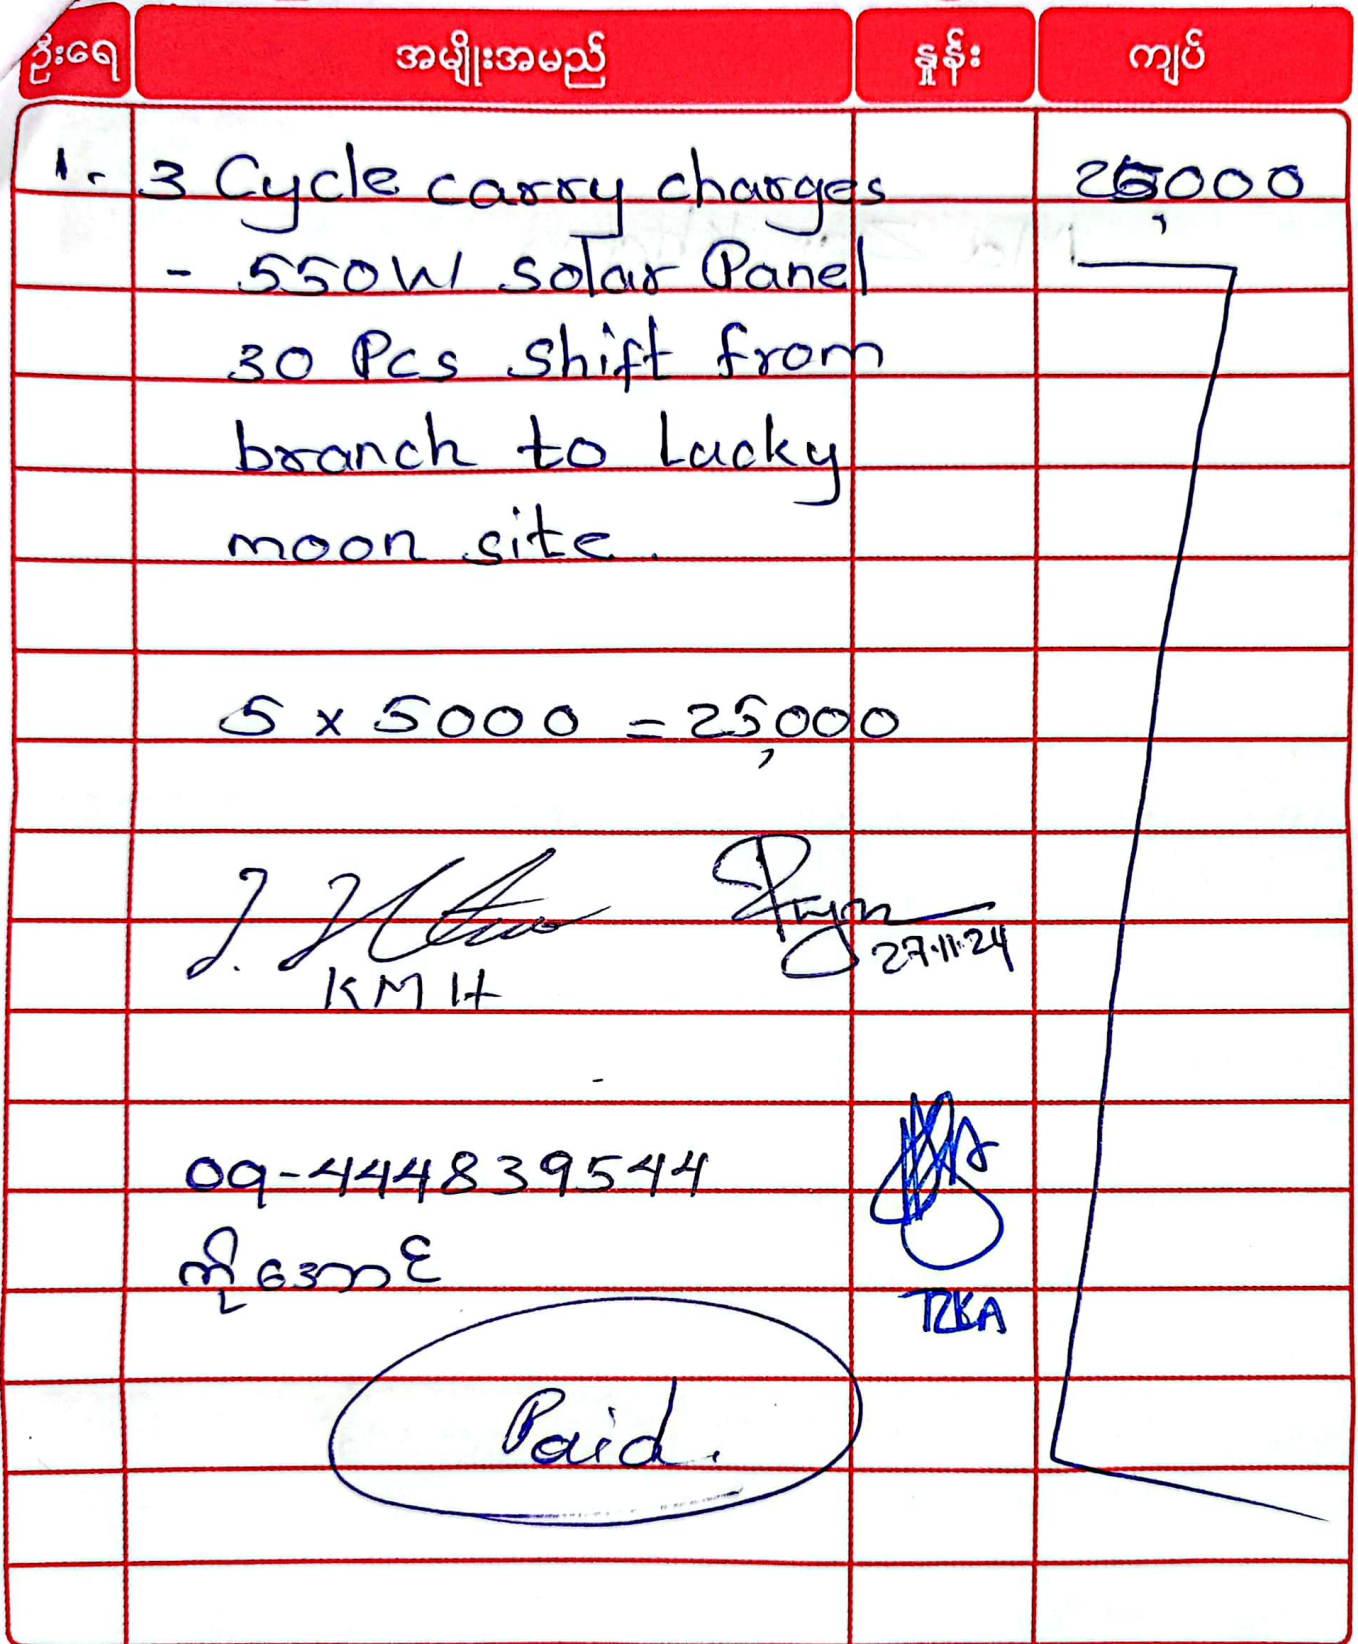 ဦးရေ အမျိုးအမည် နှုန်း ကျပ်
1. 3 Cycle carry charges 25,000
- 550W Solar Panel
30 Pcs Shift from
branch to Lucky
moon site.
5 x 5000 = 25,000
27.11.24
KMH
09-444839544
ကိုအောင်
TZKA
Paid.